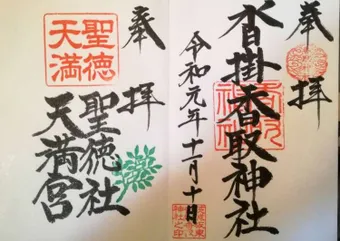 奉拝
沓掛香取神社
令和元年十一月十日
奉拝
聖徳
天満
聖徳社
天満宮